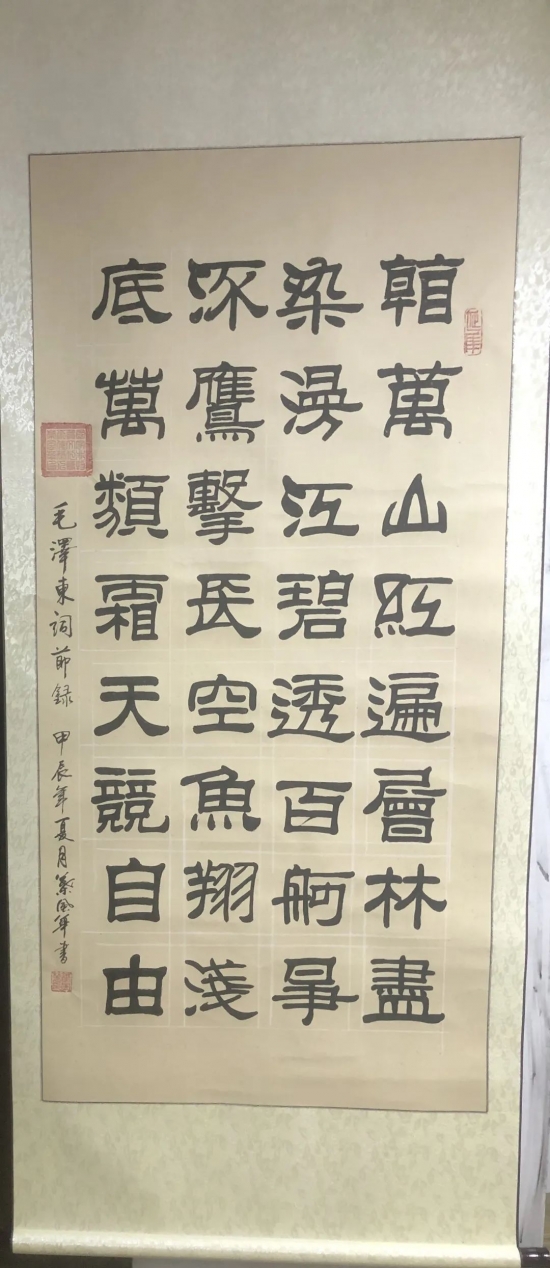 看萬山紅遍層林盡
染漫江碧透百舸爭
流鷹擊長空魚翔淺
底萬類霜天競自由
毛澤東詞節録 甲辰年夏月書